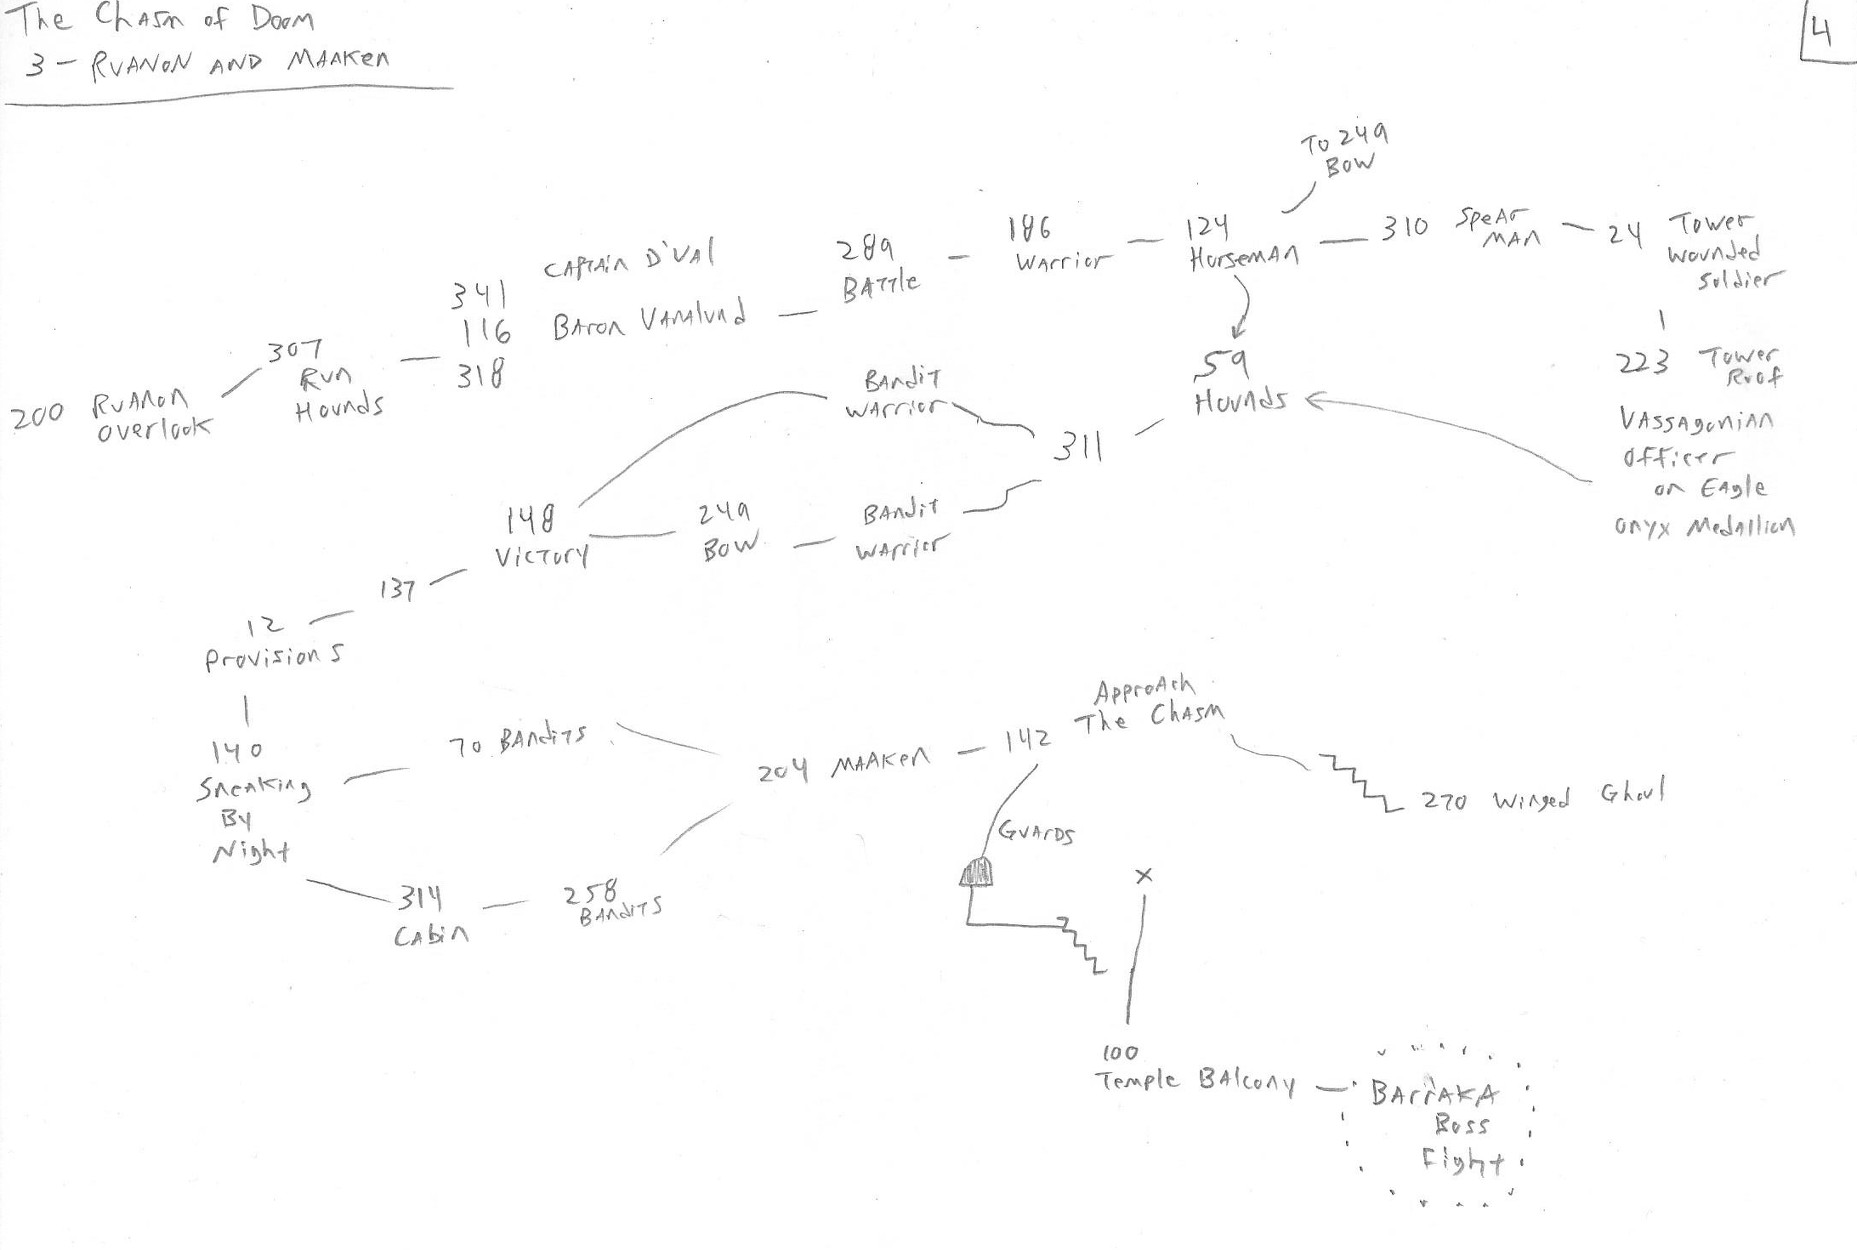 The Chasm of Doom
3 - Ruanon and Maaken
4
To 249
Bow
341 Captain D'Val
116 Baron Vanalund
318
289
Battle
186
Warrior
124
Horseman
310 Spear
man
24 Tower
Wounded
Soldier
200 Ruanon
Overlook
307
Run
Hounds
Bandit
Warrior
59
Hounds
223 Tower
Roof
Vassagonian
Officer
on Eagle
Onyx Medallion
311
148
Victory
249
Bow
Bandit
Warrior
137
12
Provisions
140
Sneaking
By
Night
70 Bandits
204 Maaken
142
Approach
The Chasm
270 Winged Ghoul
Guards
314
Cabin
258
Bandits
X
100
Temple Balcony
Barraka
Boss
Fight